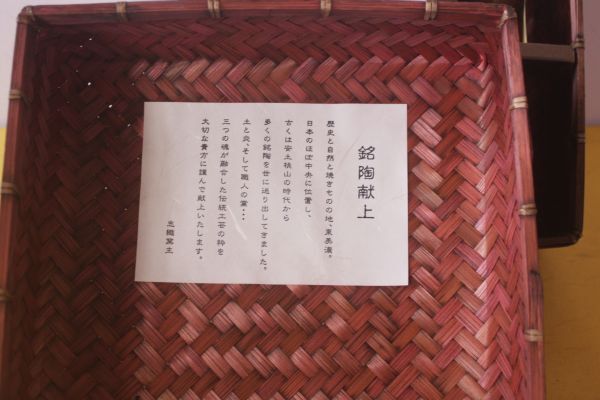 銘陶献上
歴史と自然と焼きものの地、東美濃。
日本のほぼ中央に位置し、
古くは安土桃山の時代から
多くの銘陶を世に送り出してきました。
土と炎、そして職人の業・・・
三つの魂が融合した伝統工芸の粋を
大切な貴方に謹んで献上いたします。
窯主